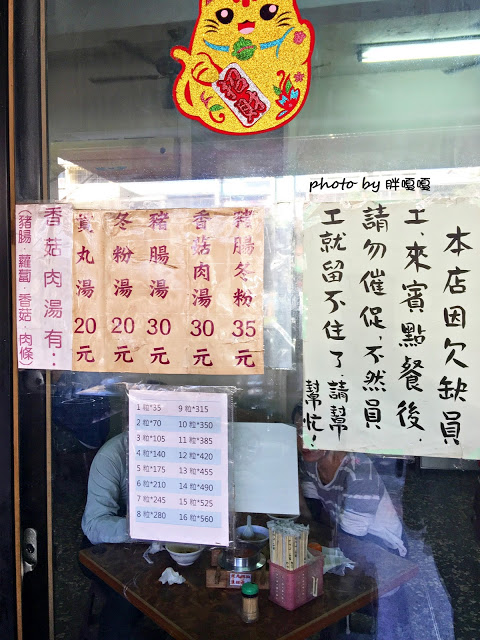 photo by 胖嘎嘎
本店因欠缺員
工,來賓點餐後,
請勿催促,不然員
工就留不住了,請幫
幫忙!
豬腸冬粉 35元
香菇肉湯 30元
豬腸湯 30元
冬粉湯 20元
貢丸湯 20元
香菇肉湯有:
(豬腸.蘿蔔.香菇.肉條)
1粒*35 9粒*315
2粒*70 10粒*350
3粒*105 11粒*385
4粒*140 12粒*420
5粒*175 13粒*455
6粒*210 14粒*490
7粒*245 15粒*525
8粒*280 16粒*560